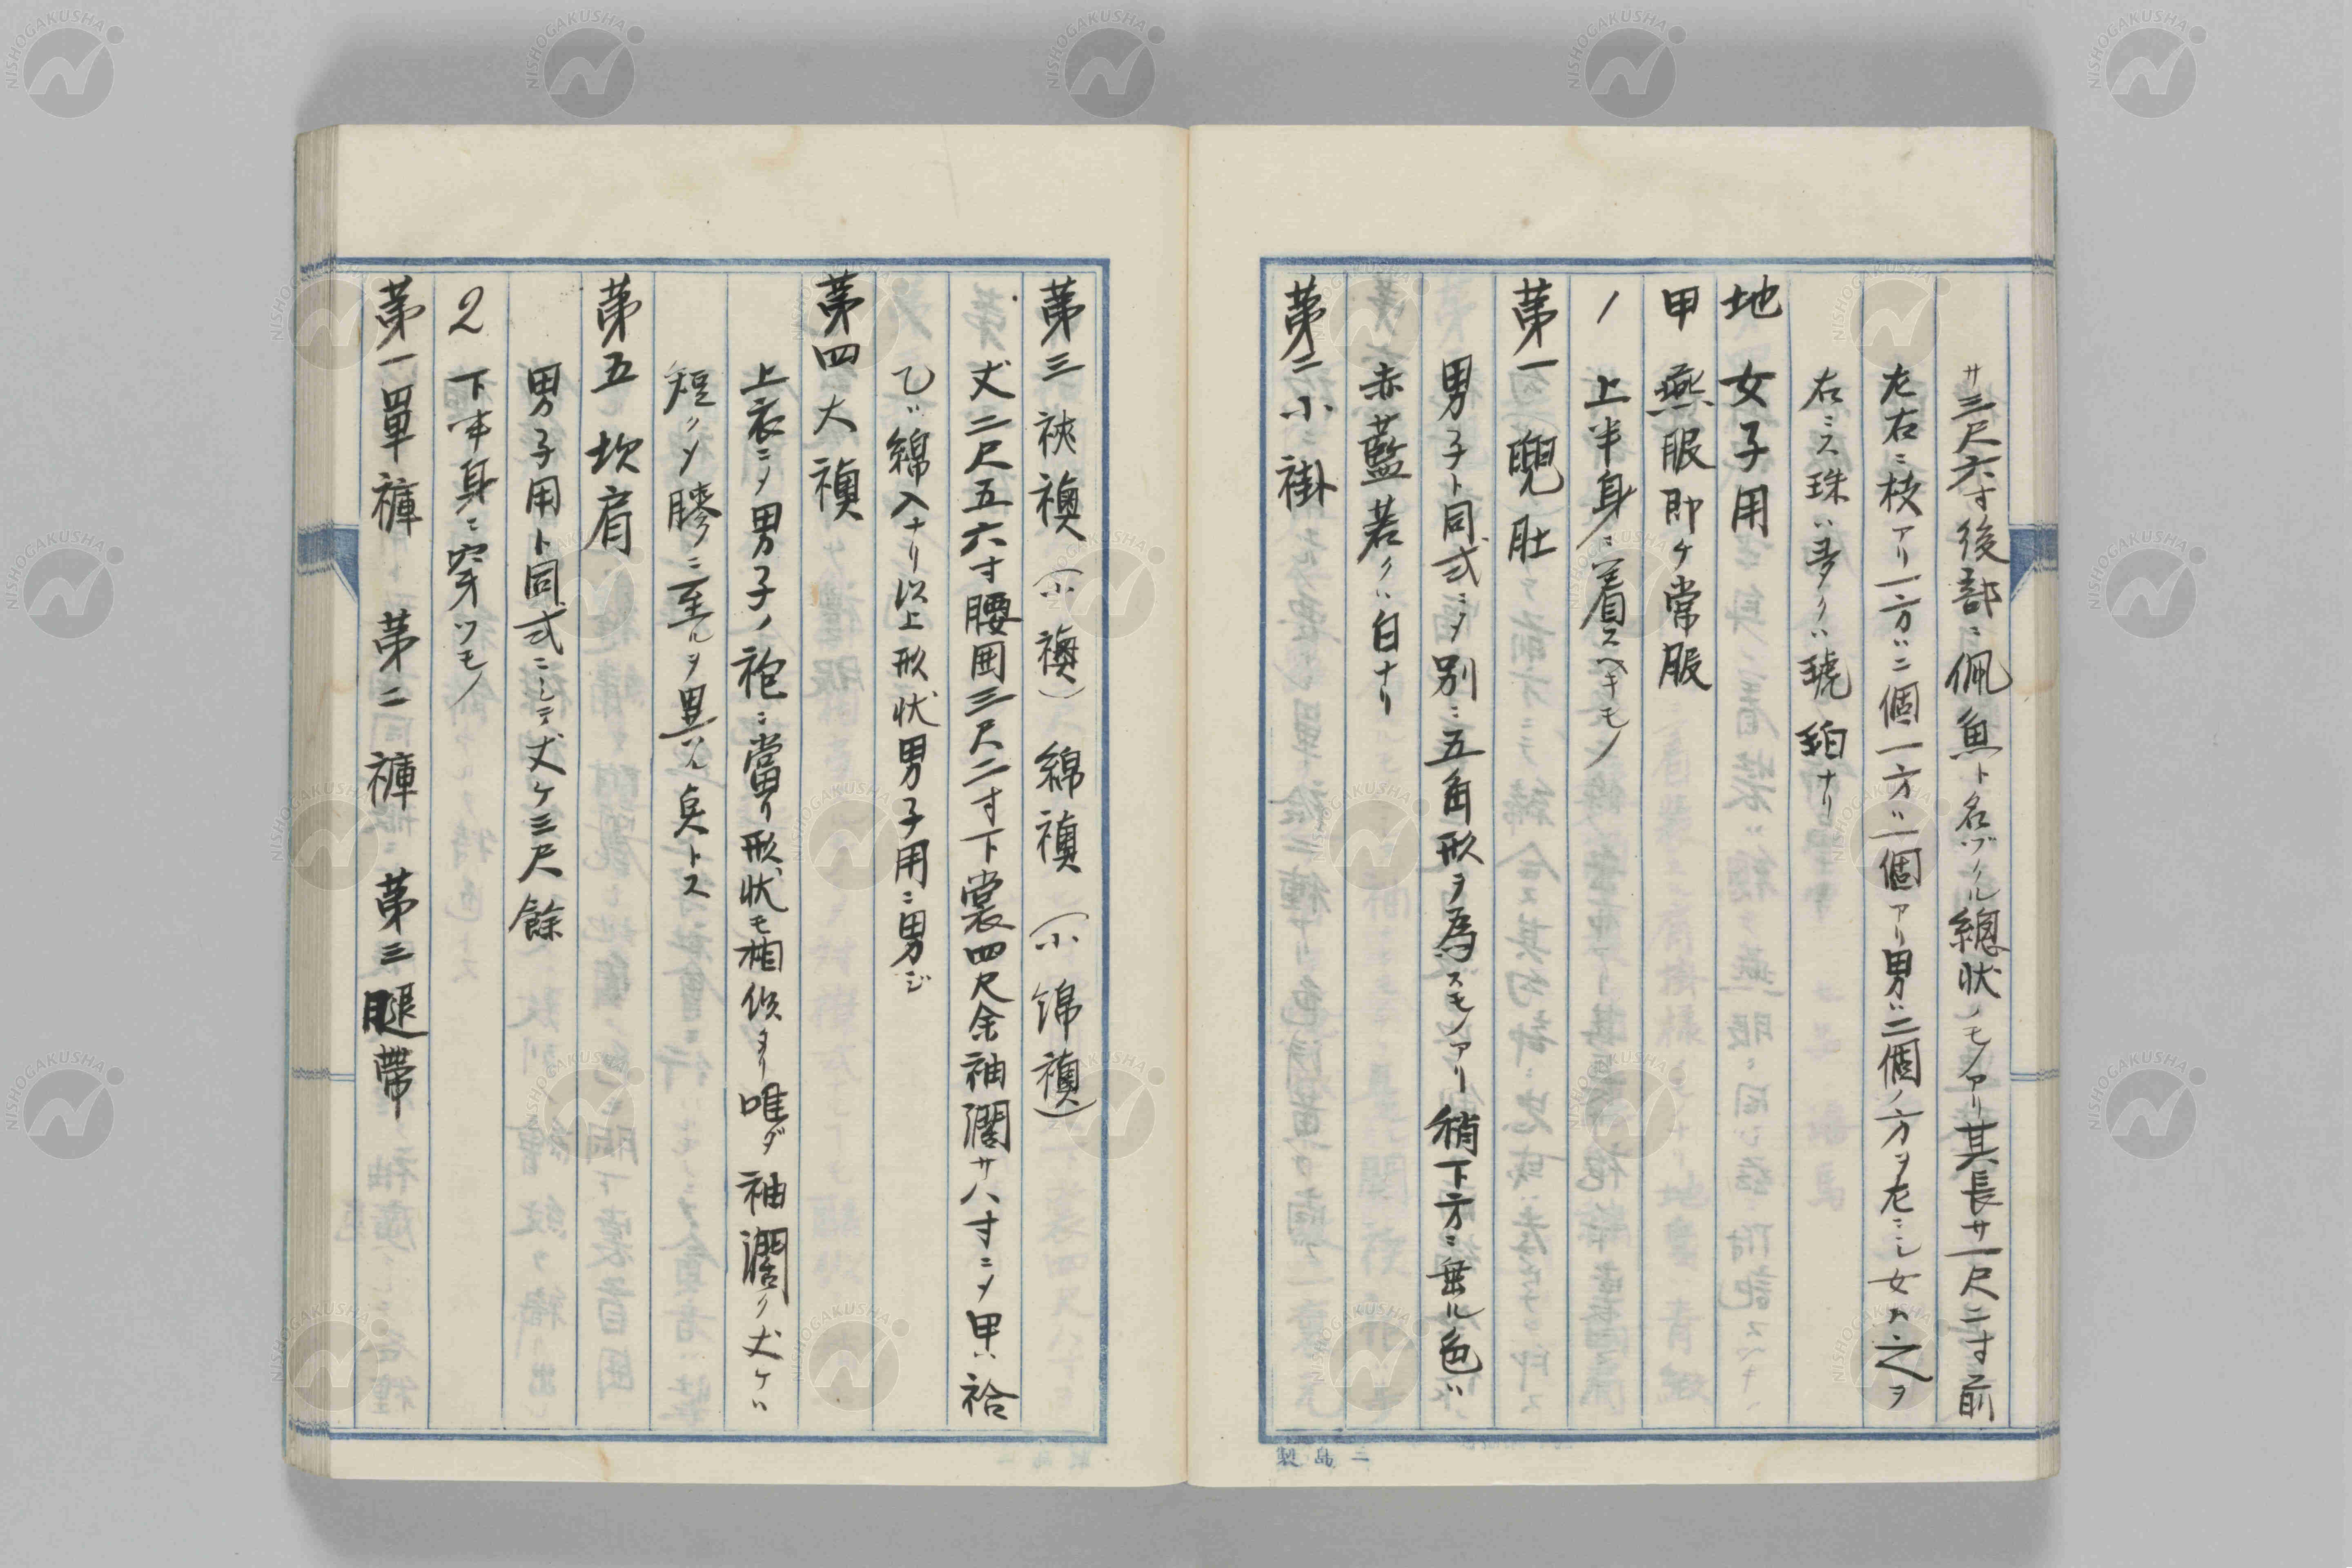 サ三尺六寸後部ニ佩魚ト名ヅクル總状ノモノアリ其長サ一尺二寸前
左右ニ枝アリ一方ハ二個一方ハ一個アリ男ハ二個ノ方ヲ左ニシ女ハ之ヲ
右ニス珠ハ多クハ琥珀ナリ
地 女子用
甲 燕服即ケ常服
1 上半身ニ着スベキモノ
第一 兜肚
男子ト同式ニシテ別ニ五角形ヲ為スモノアリ 稍下方ニ垂ル色ハ
赤藍若クハ白ナリ
第二 小褂
第三 裌襖(小襖) 綿襖(小綿襖)
丈二尺五六寸腰囲三尺二寸下裳四尺余袖濶サ八寸ニシテ甲ハ袷
乙ハ綿入ナリ以上形状男子用ニ男ジ
第四 大襖
上衣ニシテ男子ノ袍ニ當リ形状モ相似タリ唯ダ袖濶ク丈ケハ
短クシテ膝ニ至ルヲ異ル点トス
第五 坎肩
男子用ト同式ニシテ丈ケ三尺餘
2 下半身ニ穿ツモノ
第一單褲 第二 褲 第三 腿帶
二島製
NISHOGAKUSHA